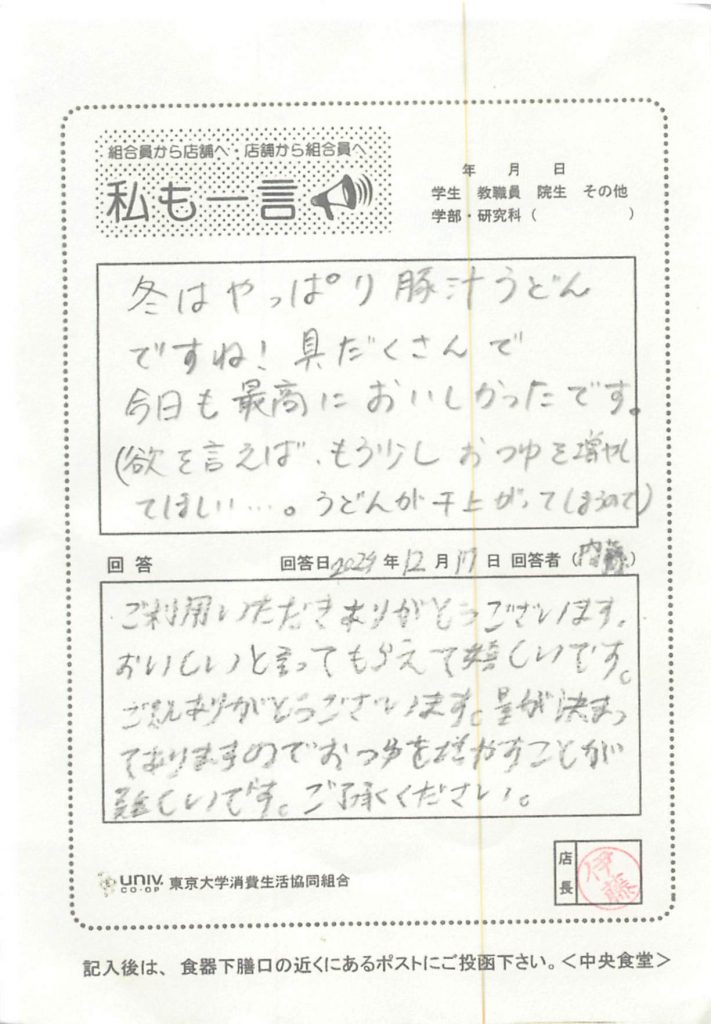 組合員から店舗へ・店舗から組合員へ
私も一言
年 月 日
学生 教職員 院生 その他
学部・研究科（ ）
冬はやっぱり豚汁うどん
ですね！具だくさんで
今日も最高においしかったです。
(欲を言えば、もう少しおつゆを増やし
てほしい…。うどんが干上がってしまうので)
回答 回答日2024年12月17日 回答者（内藤）
ご利用いただきありがとうございます。
おいしいと言ってもらえて嬉しいです。
ご意見ありがとうございます。量が決まっ
ておりますのでおつゆを増やすことが
難しいです。ご了承ください。
店長 伊藤
UNIV. CO-OP 東京大学消費生活協同組合
記入後は、食器下膳口の近くにあるポストにご投函下さい。＜中央食堂＞